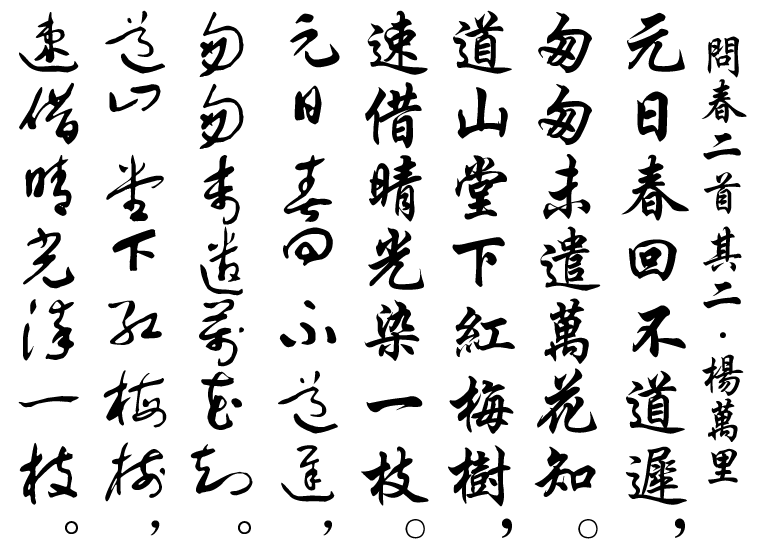 問春二首其二．楊萬里
元日春回不道遲，
匆匆未遣萬花知。
道山堂下紅梅樹，
速借晴光染一枝。
元日春回不道遲，
匆匆未遣萬花知。
道山堂下紅梅樹，
速借晴光染一枝。